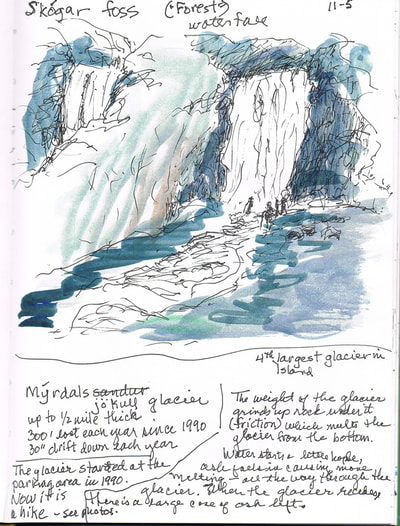 Skógar foss ("Forest") 11-5
waterfall
4th largest glacier in
Island
Mýrdals sandur
jökull glacier
up to 1/2 mile thick
300' lost each year since 1990
30" drift down each year
The glacier started at the
parking area in 1990.
Now it is
a hike - see photos.
The weight of the glacier
grinds up rock under it
(friction) which melts the
glacier from the bottom.
Water starts a little
ash causing more
melting - all the way through the
glacier. When the glacier recedes,
there is a large cone of ash left.